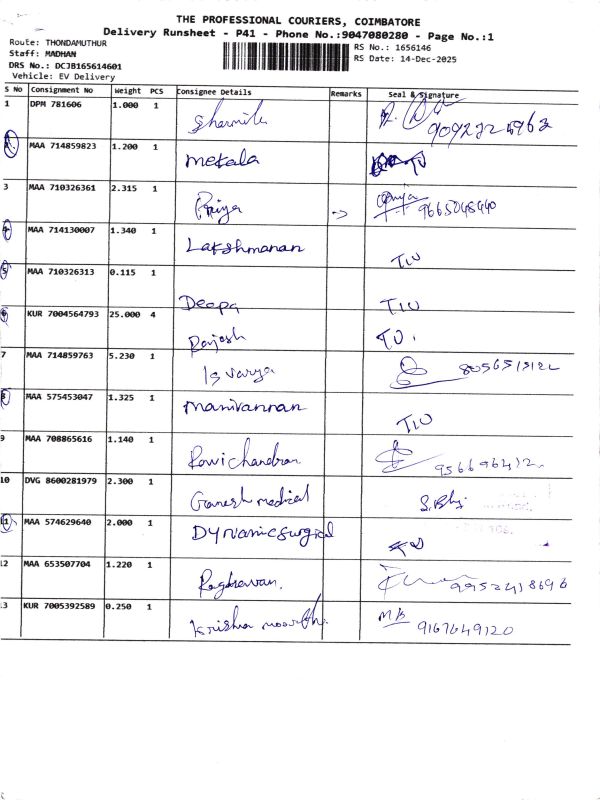 THE PROFESSIONAL COURIERS, COIMBATORE
Delivery Runsheet - P41 - Phone No.:9047080280 - Page No.:1
Route: THONDAMUTHUR RS No.: 1656146
Staff: MADHAN RS Date: 14-Dec-2025
DRS No.: DCJB165614601
Vehicle: EV Delivery
S No Consignment No Weight PCS Consignee Details Remarks Seal & Signature
1 DPM 781606 1.000 1 Sharmila
MAA 714859823 1.200 1 Mekala
3 MAA 710326361 2.315 1 Priya -> 9665048440
4 MAA 714130007 1.340 1 Lakshmanan TIU
5 MAA 710326313 0.115 1 Deepa TIU
6 KUR 7004564793 25.000 4 Rajesh TU.
7 MAA 714859763 5.230 1 Isvarya
8 MAA 575453047 1.325 1 Manivannan TIU
9 MAA 708865616 1.140 1 Ravichandran
10 DVG 8600281979 2.300 1 Ganesh medical
11 MAA 574629640 2.000 1 Dynamic surgical
12 MAA 653507704 1.220 1 Raghavan. 9952418696
13 KUR 7005392589 0.250 1 Krishna moorthi 9167649120